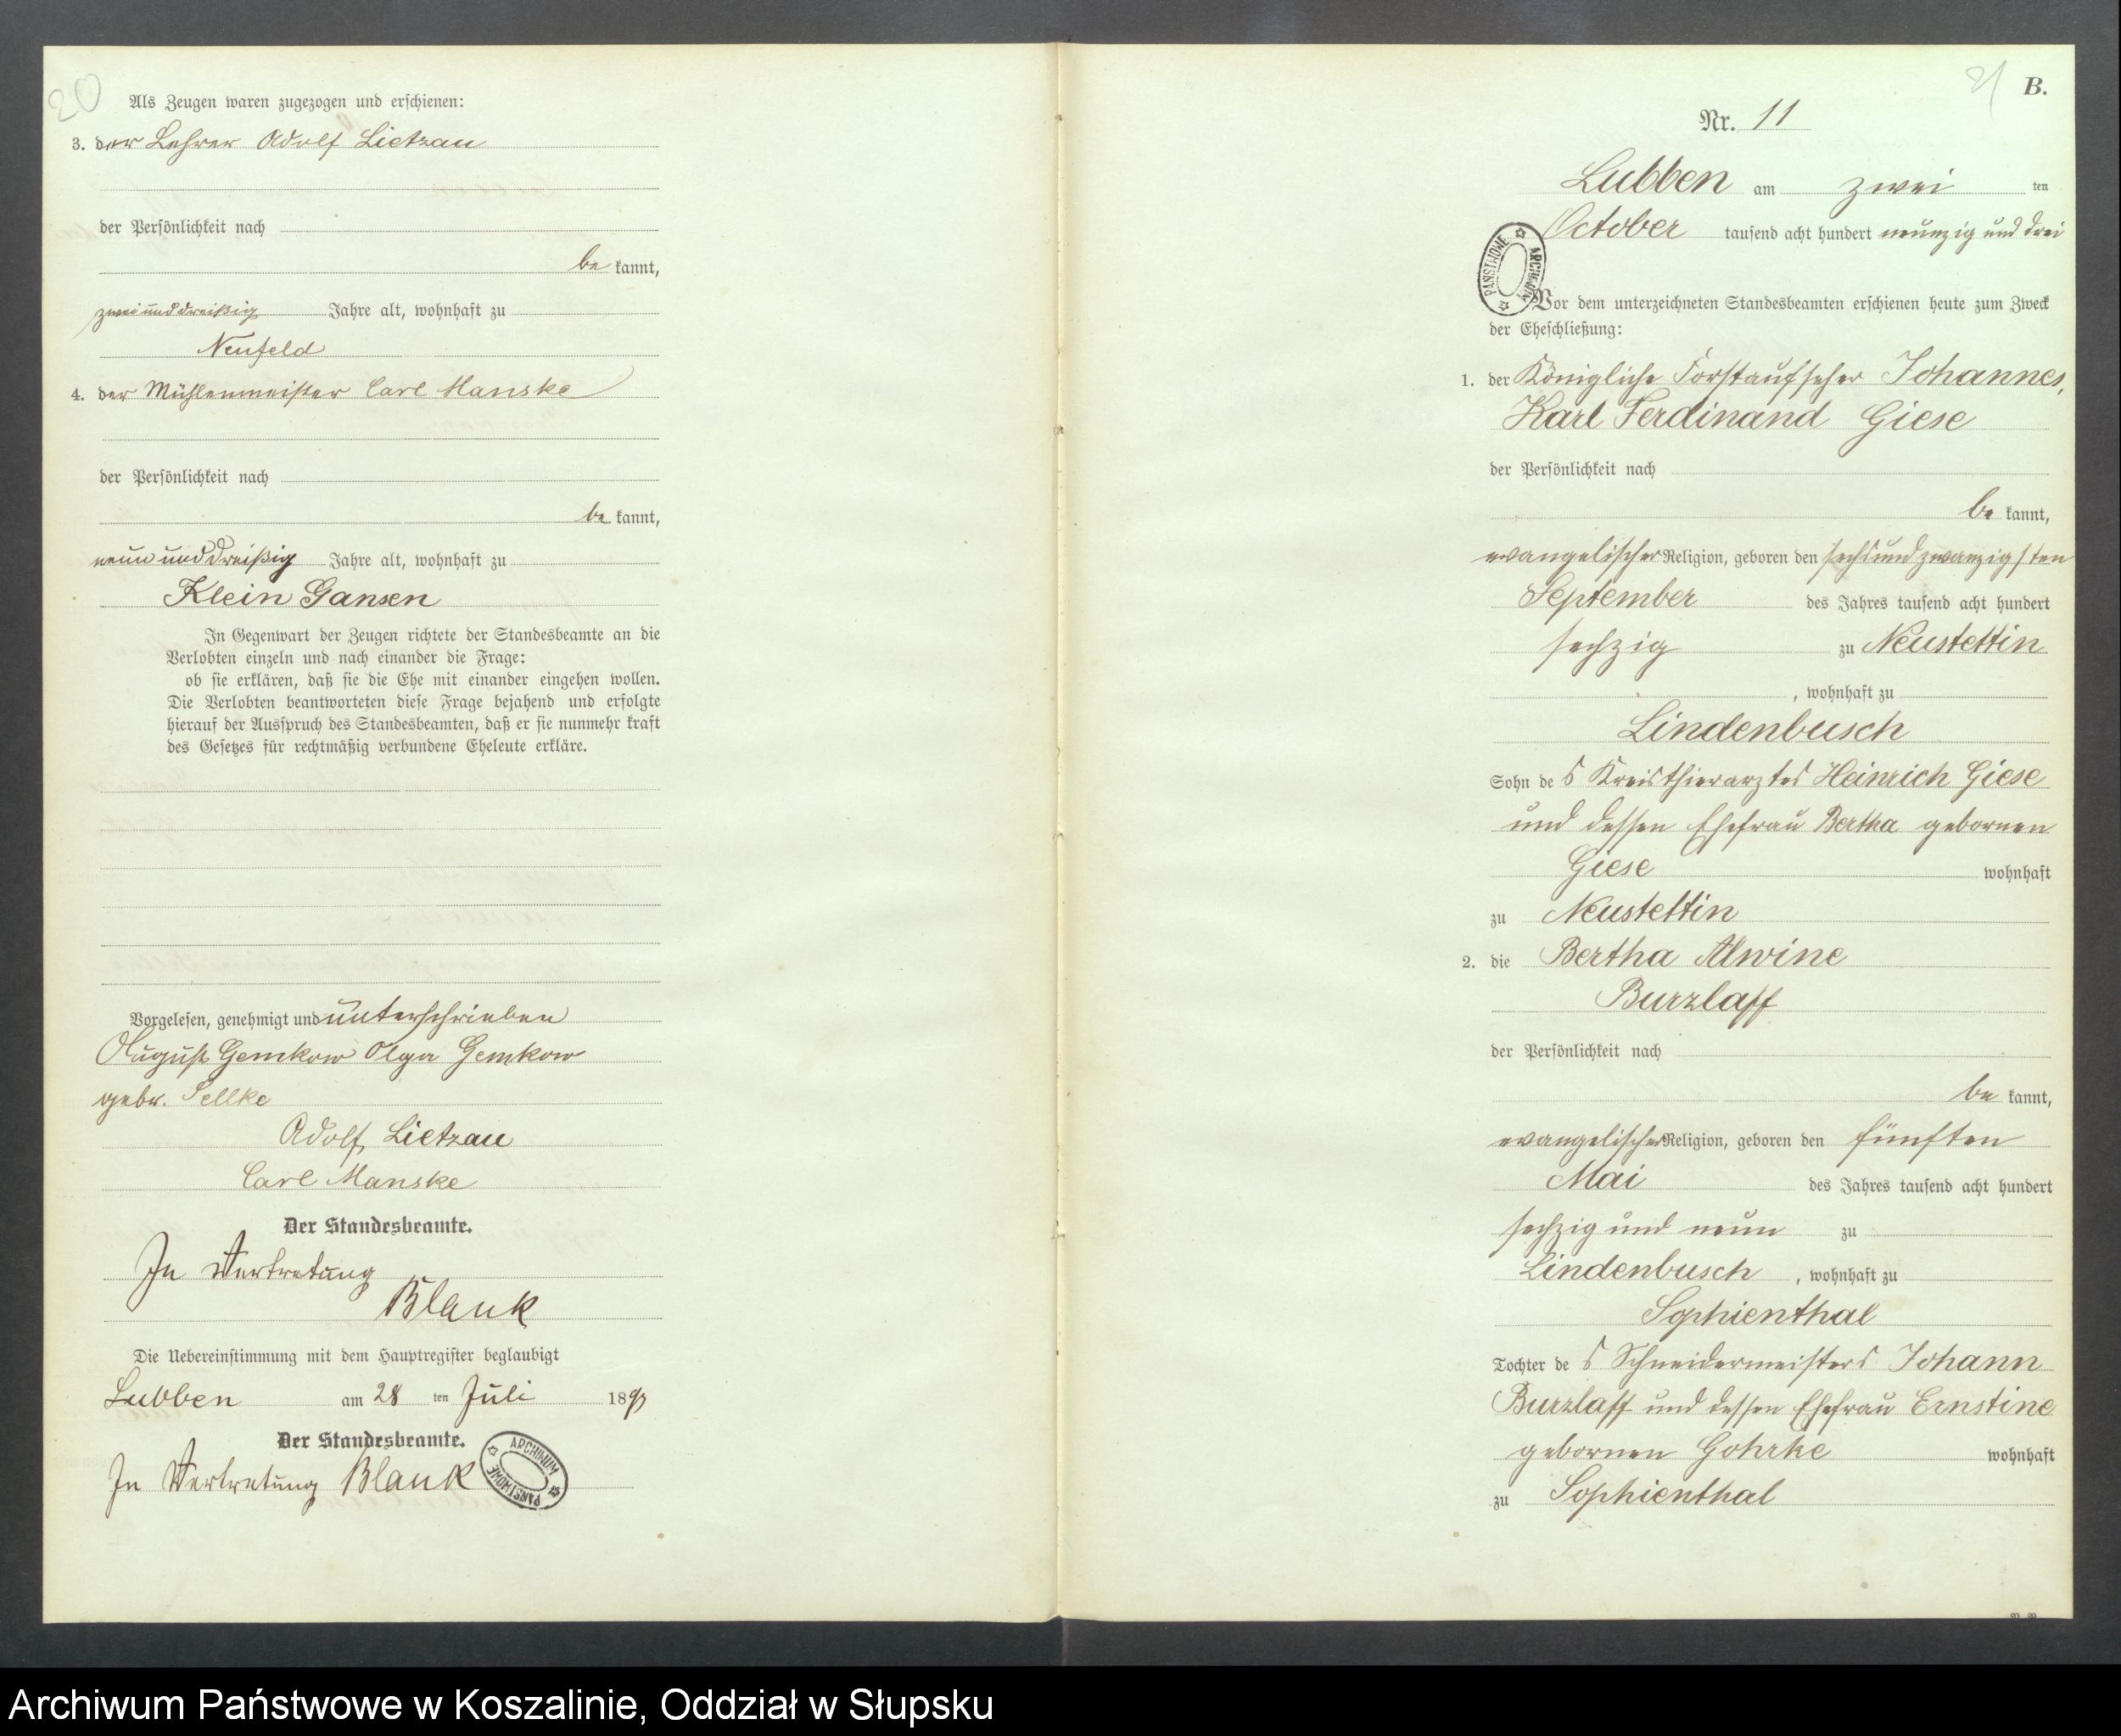 20
Als Zeugen waren zugezogen und erschienen:
3. der Lehrer Adolf Lietzau
der Persönlichkeit nach
be kannt,
zwei und dreißig Jahre alt, wohnhaft zu
Neufeld
4. der Mühlenmeister Carl Manske
der Persönlichkeit nach
be kannt,
neun und dreißig Jahre alt, wohnhaft zu
Klein Gansen
In Gegenwart der Zeugen richtete der Standesbeamte an die
Verlobten einzeln und nach einander die Frage:
ob sie erklären, daß sie die Ehe mit einander eingehen wollen.
Die Verlobten beantworteten diese Frage bejahend und erfolgte
hierauf der Ausspruch des Standesbeamten, daß er sie nunmehr kraft
des Gesetzes für rechtmäßig verbundene Eheleute erkläre.
Vorgelesen, genehmigt und unterschrieben
August Gemkow Olga Gemkow
gebr. Sellke
Adolf Lietzau
Carl Manske
Der Standesbeamte.
In Vertretung
Blank
Die Uebereinstimmung mit dem Hauptregister beglaubigt
Lubben am 28 ten Juli 1893
Der Standesbeamte.
In Vertretung Blank
ARCHIWUM PAŃSTWOWE
21
B.
Nr. 11
Lubben am zwei ten
October tausend acht hundert neunzig und drei
ARCHIWUM PAŃSTWOWE
Vor dem unterzeichneten Standesbeamten erschienen heute zum Zweck
der Eheschließung:
1. der Königliche Forstaufseher Johannes,
Karl Ferdinand Giese
der Persönlichkeit nach
be kannt,
evangelischer Religion, geboren den sechs und zwanzigsten
September des Jahres tausend acht hundert
sechzig zu Neustettin
, wohnhaft zu
Lindenbusch
Sohn de s Kreisthierarztes Heinrich Giese
und dessen Ehefrau Bertha gebornen
Giese wohnhaft
zu Neustettin
2. die Bertha Alwine
Burzlaff
der Persönlichkeit nach
be kannt,
evangelischer Religion, geboren den fünften
Mai des Jahres tausend acht hundert
sechzig und neun zu
Lindenbusch , wohnhaft zu
Sophienthal
Tochter de s Schneidermeisters Johann
Burzlaff und dessen Ehefrau Ernstine
gebornen Gohrke wohnhaft
zu Sophienthal
Archiwum Państwowe w Koszalinie, Oddział w Słupsku